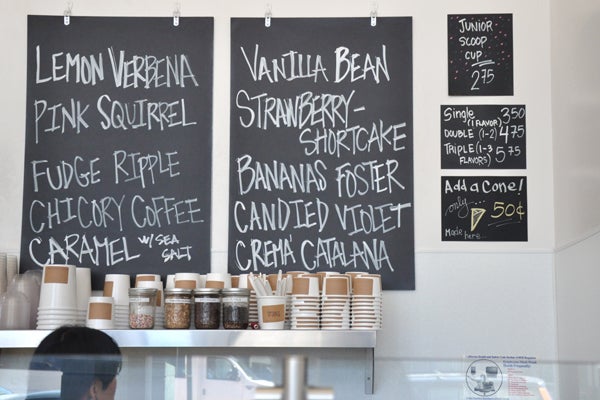 LEMON VERBENA
PINK SQUIRREL
FUDGE RIPPLE
CHICORY COFFEE
CARAMEL W/ SEA SALT
VANILLA BEAN
STRAWBERRY-
SHORTCAKE
BANANAS FOSTER
CANDIED VIOLET
CREMA CATALANA
JUNIOR
SCOOP
CUP
2 75
Single 3 50
(1 FLAVOR)
DOUBLE (1-2) 4 75
TRIPLE (1-3 5 75
FLAVORS)
Add a Cone!
only... 50¢
Made here...